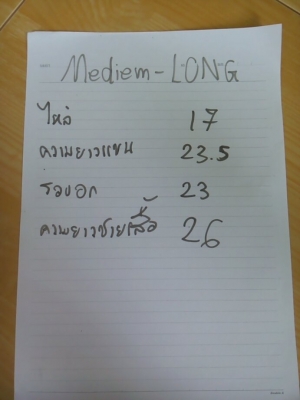 Mediem-LONG
ไหล่ 17
ความยาวแขน 23.5
รอบอก 23
ความยาวชายเสื้อ 26